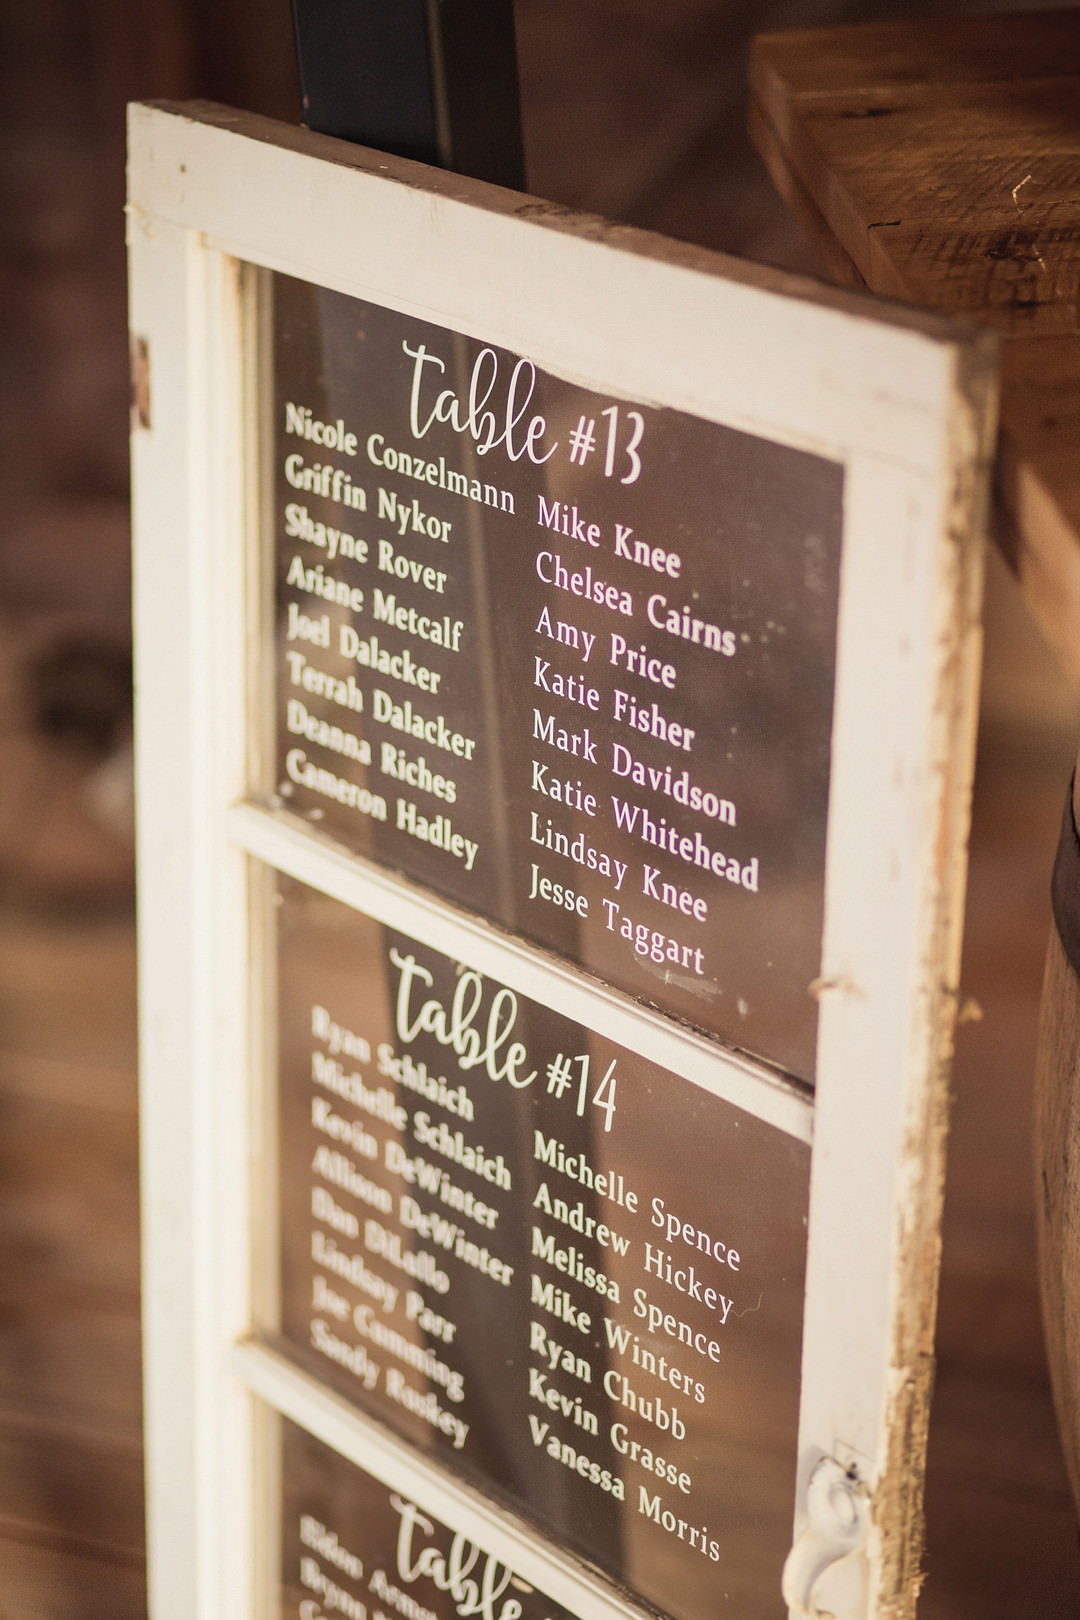 table #13
Nicole Conzelmann
Griffin Nykor
Shayne Rover
Ariane Metcalf
Joel Dalacker
Terrah Dalacker
Deanna Riches
Cameron Hadley
Mike Knee
Chelsea Cairns
Amy Price
Katie Fisher
Mark Davidson
Katie Whitehead
Lindsay Knee
Jesse Taggart
table #14
Ryan Schlaich
Michelle Schlaich
Kevin DeWinter
Allison DeWinter
Dan DiLallo
Lindsay Parr
Joe Cumming
Sandy Ruskey
Michelle Spence
Andrew Hickey
Melissa Spence
Mike Winters
Ryan Chubb
Kevin Grasse
Vanessa Morris
table